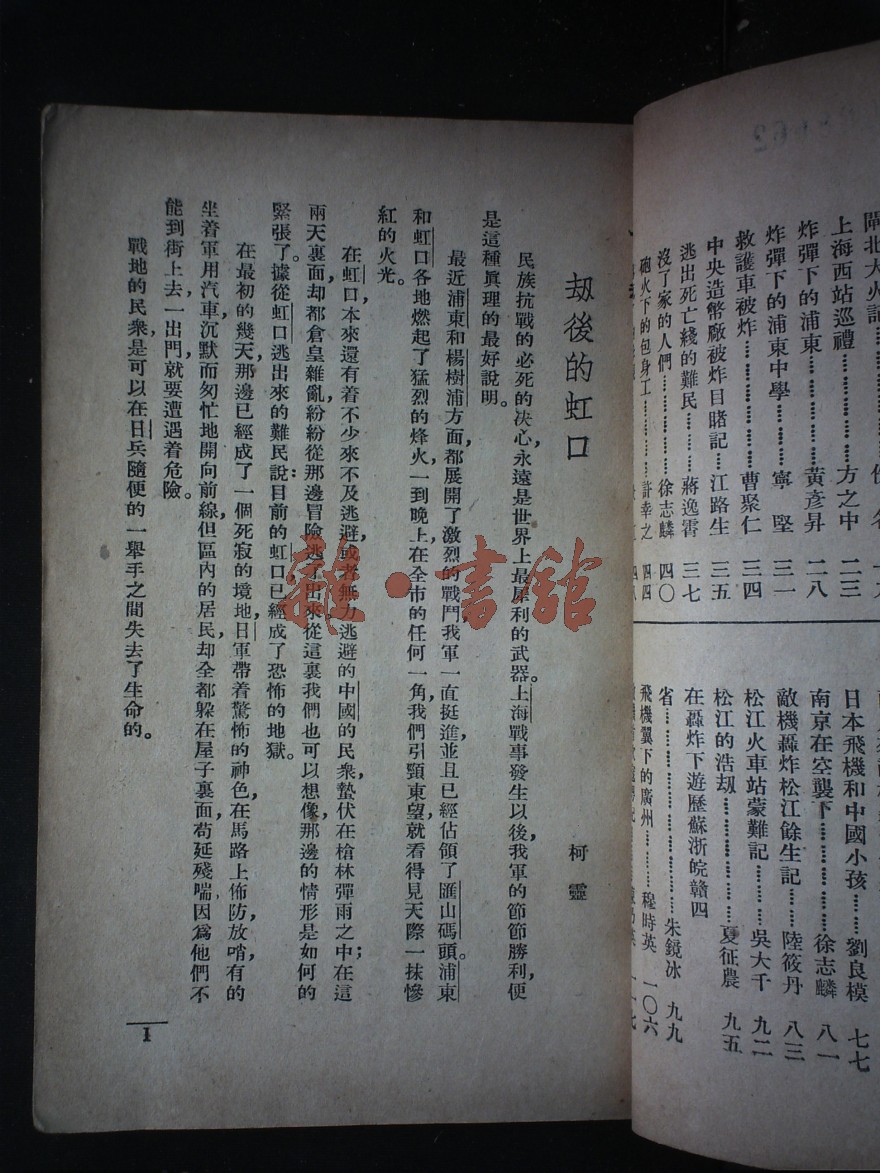 上海西站巡禮…………方之中 二三
炸彈下的浦東…………黃彥昇 二八
炸彈下的浦東中學…………寧堅 三一
救護車被炸…………曹聚仁 三四
中央造幣廠被炸目睹記…………江路生 三五
逃出死亡綫的難民…………蔣逸霄 三七
沒了家的人們…………徐志麟 四〇
砲火下的包身工…………許幸之 四四
日本飛機和中國小孩…………劉良模 七七
南京在空襲下…………徐志麟 八一
敵機轟炸松江餘生記…………陸筱丹 八三
松江火車站蒙難記…………吳大千 九二
松江的浩刼…………夏征農 九五
在轟炸下遊歷蘇浙皖贛四
省…………朱鏡冰 九九
飛機翼下的廣州…………程時英 一〇六
刼後的虹口
柯靈
民族抗戰的必死的决心,永遠是世界上最犀利的武器。上海戰事發生以後,我軍的節節勝利,便
是這種眞理的最好說明。
最近浦東和楊樹浦方面,都展開了激烈的戰鬥,我軍一直挺進,並且已經佔領了匯山碼頭。浦東
和虹口各地燃起了猛烈的烽火,一到晚上,在全市的任何一角,我們引頸東望,就看得見天際一抹慘
紅的火光。
在虹口,本來還有着不少來不及逃避,或者無力逃避的中國的民衆,蟄伏在槍林彈雨之中;在這
兩天裏面,却都倉皇雜亂,紛紛從那邊冒險逃了出來,從這裏我們也可以想像,那邊的情形是如何的
緊張了。據從虹口逃出來的難民說:目前的虹口,已經成了恐怖的地獄。
在最初的幾天,那邊已經成了一個死寂的境地,日軍帶着驚怖的神色,在馬路上佈防放哨,有的
坐着軍用汽車,沉默而匆忙地開向前線,但區內的居民,却全都躲在屋子裏面,苟延殘喘,因爲他們不
能到街上去,一出門就要遭遇着危險。
戰地的民衆,是可以在日兵隨便的一舉手之間失去了生命的。
1
雜·書館